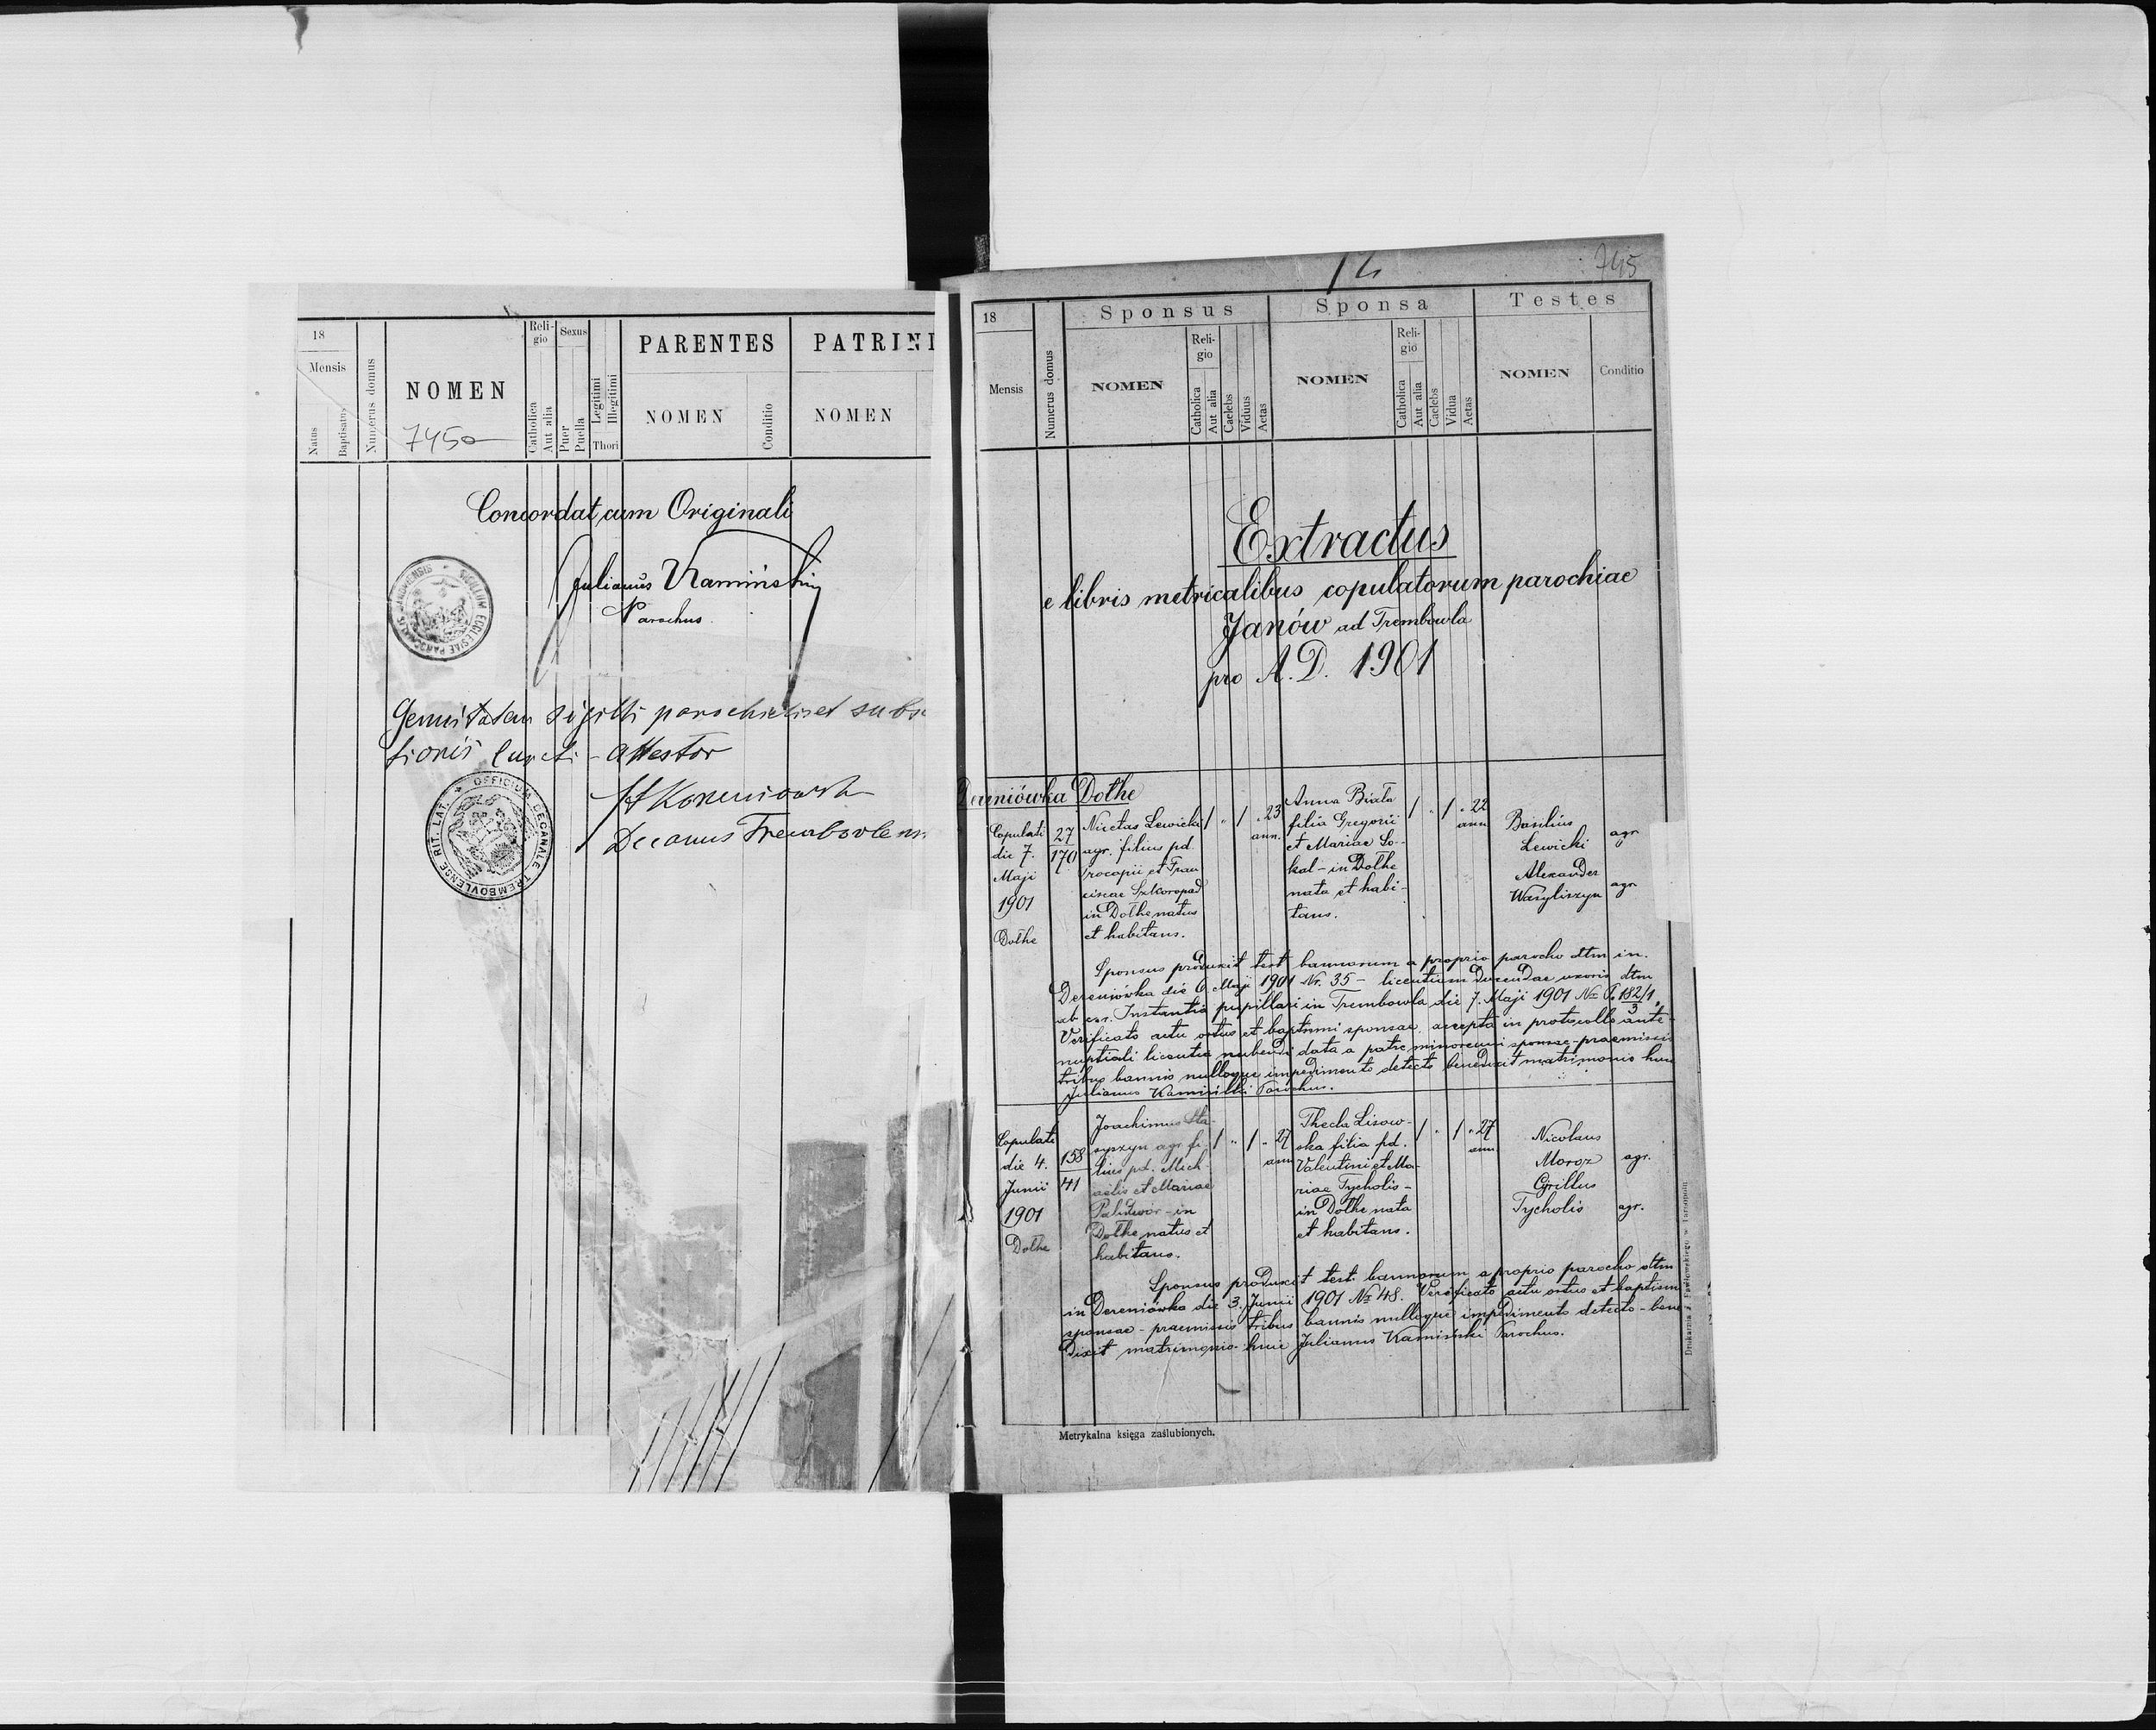 18
Mensis
Natus
Baptisatus
Numerus domus
NOMEN
7450
Religio
Catholica
Aut alia
Sexus
Puer
Puella
Legitimi
Illegitimi
Thori
PARENTES
NOMEN
Conditio
PATRINI
NOMEN
Concordat cum Originali
Julianus Kamiński
Parochus
Genuitatem sigilli parochialis et subs
tionis
attestor
Decanus Trembovlens
OFFICIUM DECANALE TREMBOVLENSE RIT. LAT.
745
18
Mensis
Numerus domus
Sponsus
NOMEN
Reli-
gio
Catholica
Aut alia
Caelebs
Viduus
Aetas
Sponsa
NOMEN
Reli-
gio
Catholica
Aut alia
Caelebs
Vidua
Aetas
Testes
NOMEN
Conditio
Extractus
e libris metricalibus copulatorum parochiae
Janów ad Trembowla
pro A.D. 1901
Dereniówka Dołhe
Copulati
die 7.
Maji
1901
Dołhe
27
170
Nicetas Lewicki
agr. filius pd.
Procopii et Fran
ciscae Szkoropad
in Dołhe natus
et habitans.
1 " 1 " 23
ann.
Anna Biała
filia Gregorii
et Mariae So-
kal - in Dołhe
nata et habi-
tans.
1 " 1 " 22
ann
Basilius
Lewicki agr
Alexander
Wasyliszyn agr
Sponsus produxit test bannorum a proprio parocho dtm in.
Dereniówka die 6 Maji 1901 Nr. 35 - licentiam ducendae uxoris dtm
ab c.r. Instantia pupillari in Trembowla die 7. Maji 1901 No P. 182/1
3
Verificato actu ortus et baptismi sponsae, accepta in protocollo ante-
nuptiali licentia nubendi data a patre minorenni sponsae - praemissis
tribus bannis nulloque impedimento detecto benedixit matrimonio huic
Julianus Kamiński Parochus.
Copulati
die 4.
Junii
1901
Dołhe
158
41
Joachimus Sta-
syszyn agr. fi-
lius pd. Mich-
aelis et Mariae
in
Dołhe natus et
habitans.
1 " 1 " 27
ann
Thecla Lisow-
ska filia pd.
Valentini et Ma-
riae Tycholis -
in Dołhe nata
et habitans.
1 " 1 " 27
ann.
Nicolaus
Moroz agr.
Cyrillus
Tycholis agr.
Sponsus produxit test. bannorum a proprio parocho dtm
in Dereniówka die 3. Junii 1901 No 48. Verificato actu ortus et baptism
sponsae - praemissis tribus bannis nulloque impedimento detecto - bene
dixit matrimonio huic Julianus Kamiński Parochus.
Metrykalna księga zaślubionych.